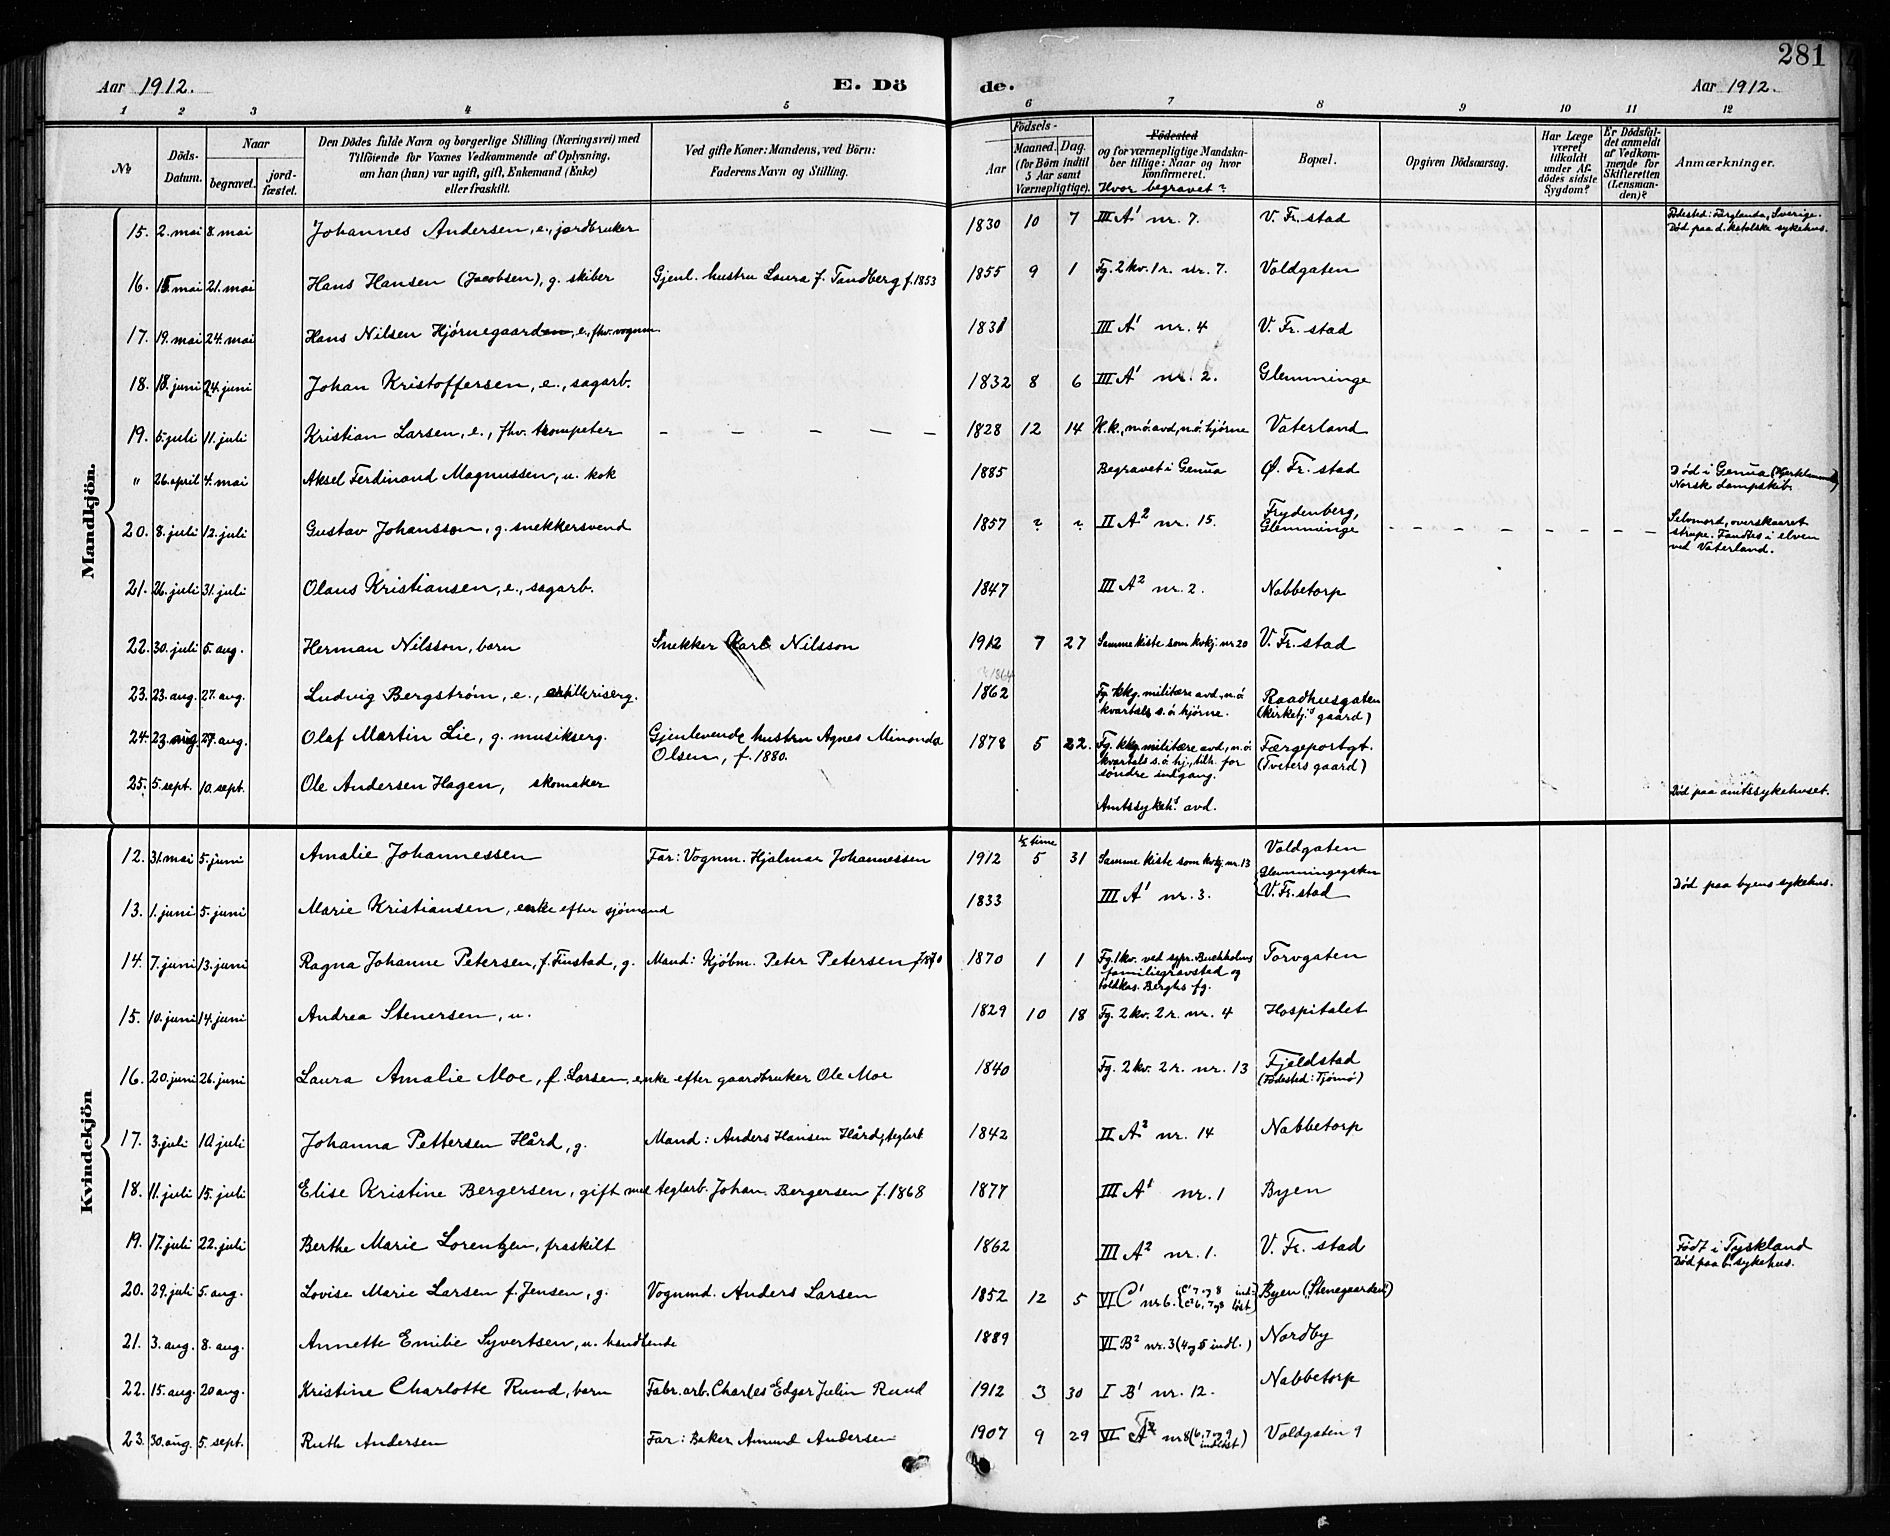 281
Aar 1912. E. Dö de. Aar 1912.
1 2 3 4 5 6 7 8 9 10 11 12
No
Döds-Datum.
Naar
begravet. jordfæstet.
Den Dödes fulde Navn og borgerlige Stilling (Næringsvei) med
Tilföiende for Voxnes Vedkommende af Oplysning,
om han (hun) var ugift, gift, Enkemand (Enke)
eller fraskilt.
Ved gifte Koner: Mandens, ved Börn:
Faderens Navn og Stilling.
Födsels-
Aar Maaned. Dag.
(for Börn indtil
5 Aar samt
Værnepligtige).
Födested
og for værnepligtige Mandska-
ber tillige: Naar og hvor
konfirmeret.
Hvor begravet?
Bopæl.
Opgiven Dödsaarsag.
Har Læge
været
tilkaldt
under Af-
dödes sidste
Sygdom?
Er Dödsfal-
det anmeldt
af Vedkom-
mende for
Skifteretten
(Lensman-
den)?
Anmærkninger.
Mandkjön.
15. 2. mai 8. mai Johannes Andersen, e., jordbruker 1830 10 7 III A1 nr. 7. V. Fr. stad Fødested: Færglanda, Sverige.
Død paa d. katolske sykehus.
16. 15. mai 21. mai Hans Hansen (Jacobsen), g. skiber Gjenl. hustru Laura f. Tandberg f. 1853 1855 9 1 Fg. 2 kv. 1 r. nr. 7. Voldgaten
17. 19. mai 24. mai Hans Nilsen Hjørnegaarden, e., fhv. vognm. 1831 III A1 nr. 4 V. Fr. stad
18. 18. juni 24. juni Johan Kristoffersen, e., sagarb. 1832 8 6 III A1 nr. 2. Glemminge
19. 5. juli 11. juli Kristian Larsen, e., fhv. trompeter – – – – – 1828 12 14 K.k., m.ö. avd., n.ö. hjørne Vaterland
" 26. april 4. mai Aksel Ferdinand Magnussen, u. kok 1885 Begravet i Genua Ø. Fr. stad Død i Genua
Norsk dampskib.
20. 8. juli 12. juli Gustav Johansson, g. snekkersvend 1857 ? ? II A2 nr. 15. Frydenberg,
Glemminge – – – – – – – – Selvmord, overskaaret
strupe. Fandtes i elven
ved Vaterland.
21. 26. juli 31. juli Olaus Kristiansen, e., sagarb. 1847 III A2 nr. 2. Nabbetorp
22. 30. juli 5. aug. Herman Nilsson, barn Snekker Karl Nilsson 1912 7 27 Samme kiste som kvkj. nr 20 V. Fr. stad
? 1864
23. 23. aug. 27. aug. Ludvig Bergstrøm, e., artilleriserg. 1862 Fg. kkg. militære avd., n.ö.
kvartals s.ö. hjørne. Raadhusgaten
(Kirketj.s gaard)
24. 23 aug. 27. aug. Olaf Martin Lie, g. musikserg. Gjenlevende hustru Agnes Minonda
Olsen, f. 1880. 1878 5 22. Fg. kkg. militære avd., n.ö.
kvartals s.ö. hj., tilh. for
søndre indgang. Færgeportgt.
(Tveters gaard)
25. 5. sept. 10. sept. Ole Andersen Hagen, skomaker Amtssykeh.s avd. Død paa amtssykehuset.
Kvindekjön
12. 31. mai 5. juni Amalie Johannessen Far: Vognm. Hjalmar Johannessen 1912 ½ time 5 31 Samme kiste som kvkj. nr. 13 Voldgaten
13. 1. juni 5. juni Marie Kristiansen, enke efter sjømand 1833 III A1 nr. 3. Glemminggsten
V. Fr. stad Død paa byens sykehus.
14. 7. juni 13. juni Ragna Johanne Petersen, f. Finstad, g. Mand: Kjøbm. Peter Petersen f. 1870 1870 1 1 Fg. 1 kv. ved sypr. Buchholms
familiegravstad og
toldkas. Berghs fg. Torvgaten
15. 10. juni 14. juni Andrea Stenersen, u. 1829 10 18 Fg. 2 kv. 2 r. nr. 4 Hospitalet
16. 20. juni 26. juni Laura Amalie Moe, f. Larsen, enke efter gaardbruker Ole Moe 1840 Fg. 2 kv. 2 r. nr. 13 Fjeldstad
(Fødested: Tjømø)
17. 3. juli 10. juli Johanna Pettersen Hård, g. Mand: Anders Hansen Hård, teglarb. 1842 II A2 nr. 14 Nabbetorp
18. 11. juli 15. juli Elise Kristine Bergersen, gift med teglarb. Johan Bergersen f. 1868 1877 III A1 nr. 1 Byen
19. 17. juli 22. juli Berthe Marie Lorentzen, fraskilt 1862 III A2 nr. 1. V. Fr. stad Født i Tyskland
Død paa b. sykehus.
20. 29. juli 5. aug. Lovise Marie Larsen f. Jensen, g. Vognmd. Anders Larsen 1852 12 5 VI C1 nr 6. (C1 7 og 8 ind-
C2 6, 7 og 8 løst) Byen ("Stenegaarden")
21. 3. aug. 8. aug. Annette Emilie Syvertsen, u. handlende 1889 VI B2 nr. 3 (4 og 5 indl.) Nordby
22. 15. aug. 20 aug. Kristine Charlotte Rund, barn Fabr. arb. Charles Edgar Julin Rund 1912 3 30 I B1 nr. 12. Nabbetorp
23. 30. aug. 5. sept. Ruth Andersen Far: Baker Amund Andersen 1907 9 29 VI A2 nr 8 (6, 7 og 9
indløst) Voldgaten 9